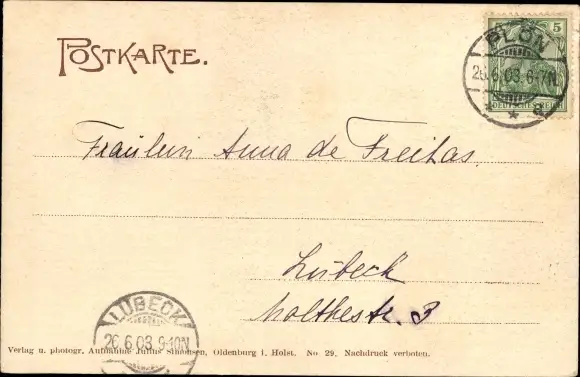 POSTKARTE.
PLÖN
26.6.03.6-7N.
5
DEUTSCHES REICH
Fräulein Anna de Freitas.
Lübeck
Moltkestr. 3
LÜBECK
26.6.03.9-10N
Verlag u. photogr. Aufnahme Julius Simonsen, Oldenburg i. Holst. No 29. Nachdruck verboten.